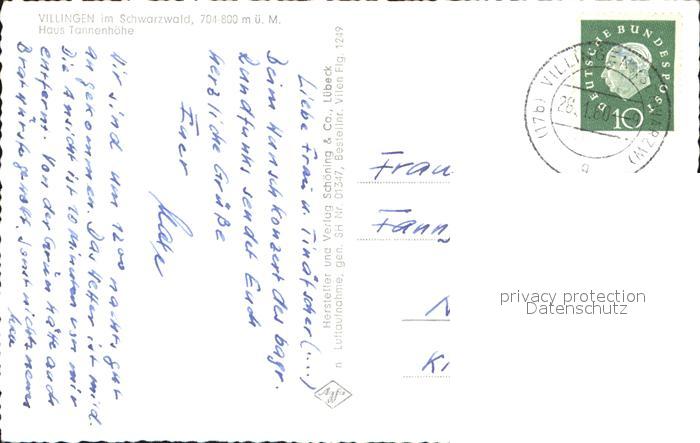 VILLINGEN im Schwarzwald, 704-800 m ü. M.
Haus Tannenhöhe
Liebe Frau u. 
Beim Wunschkonzert des bayr.
Rundfunks sendet Euch
herzliche Grüße
Euer
Wir sind um 1200 nachts gut
angekommen. Das Wetter ist mild.
Die Ansicht ist 10 Minuten von mir
entfernt. Von der Grün hätte auch
Bratwurst geholt. Sonst nichts neues
Hersteller und Verlag Schöning & Co., Lübeck
Luftaufnahme, gen. SH Nr. 01347, Bestellnr. Villen Flg. 1249
DEUTSCHE BUNDESPOST
10
(17b) VILLINGEN (SCHWARZW)
26.1.60
a
Frau
Fann
privacy protection
Datenschutz